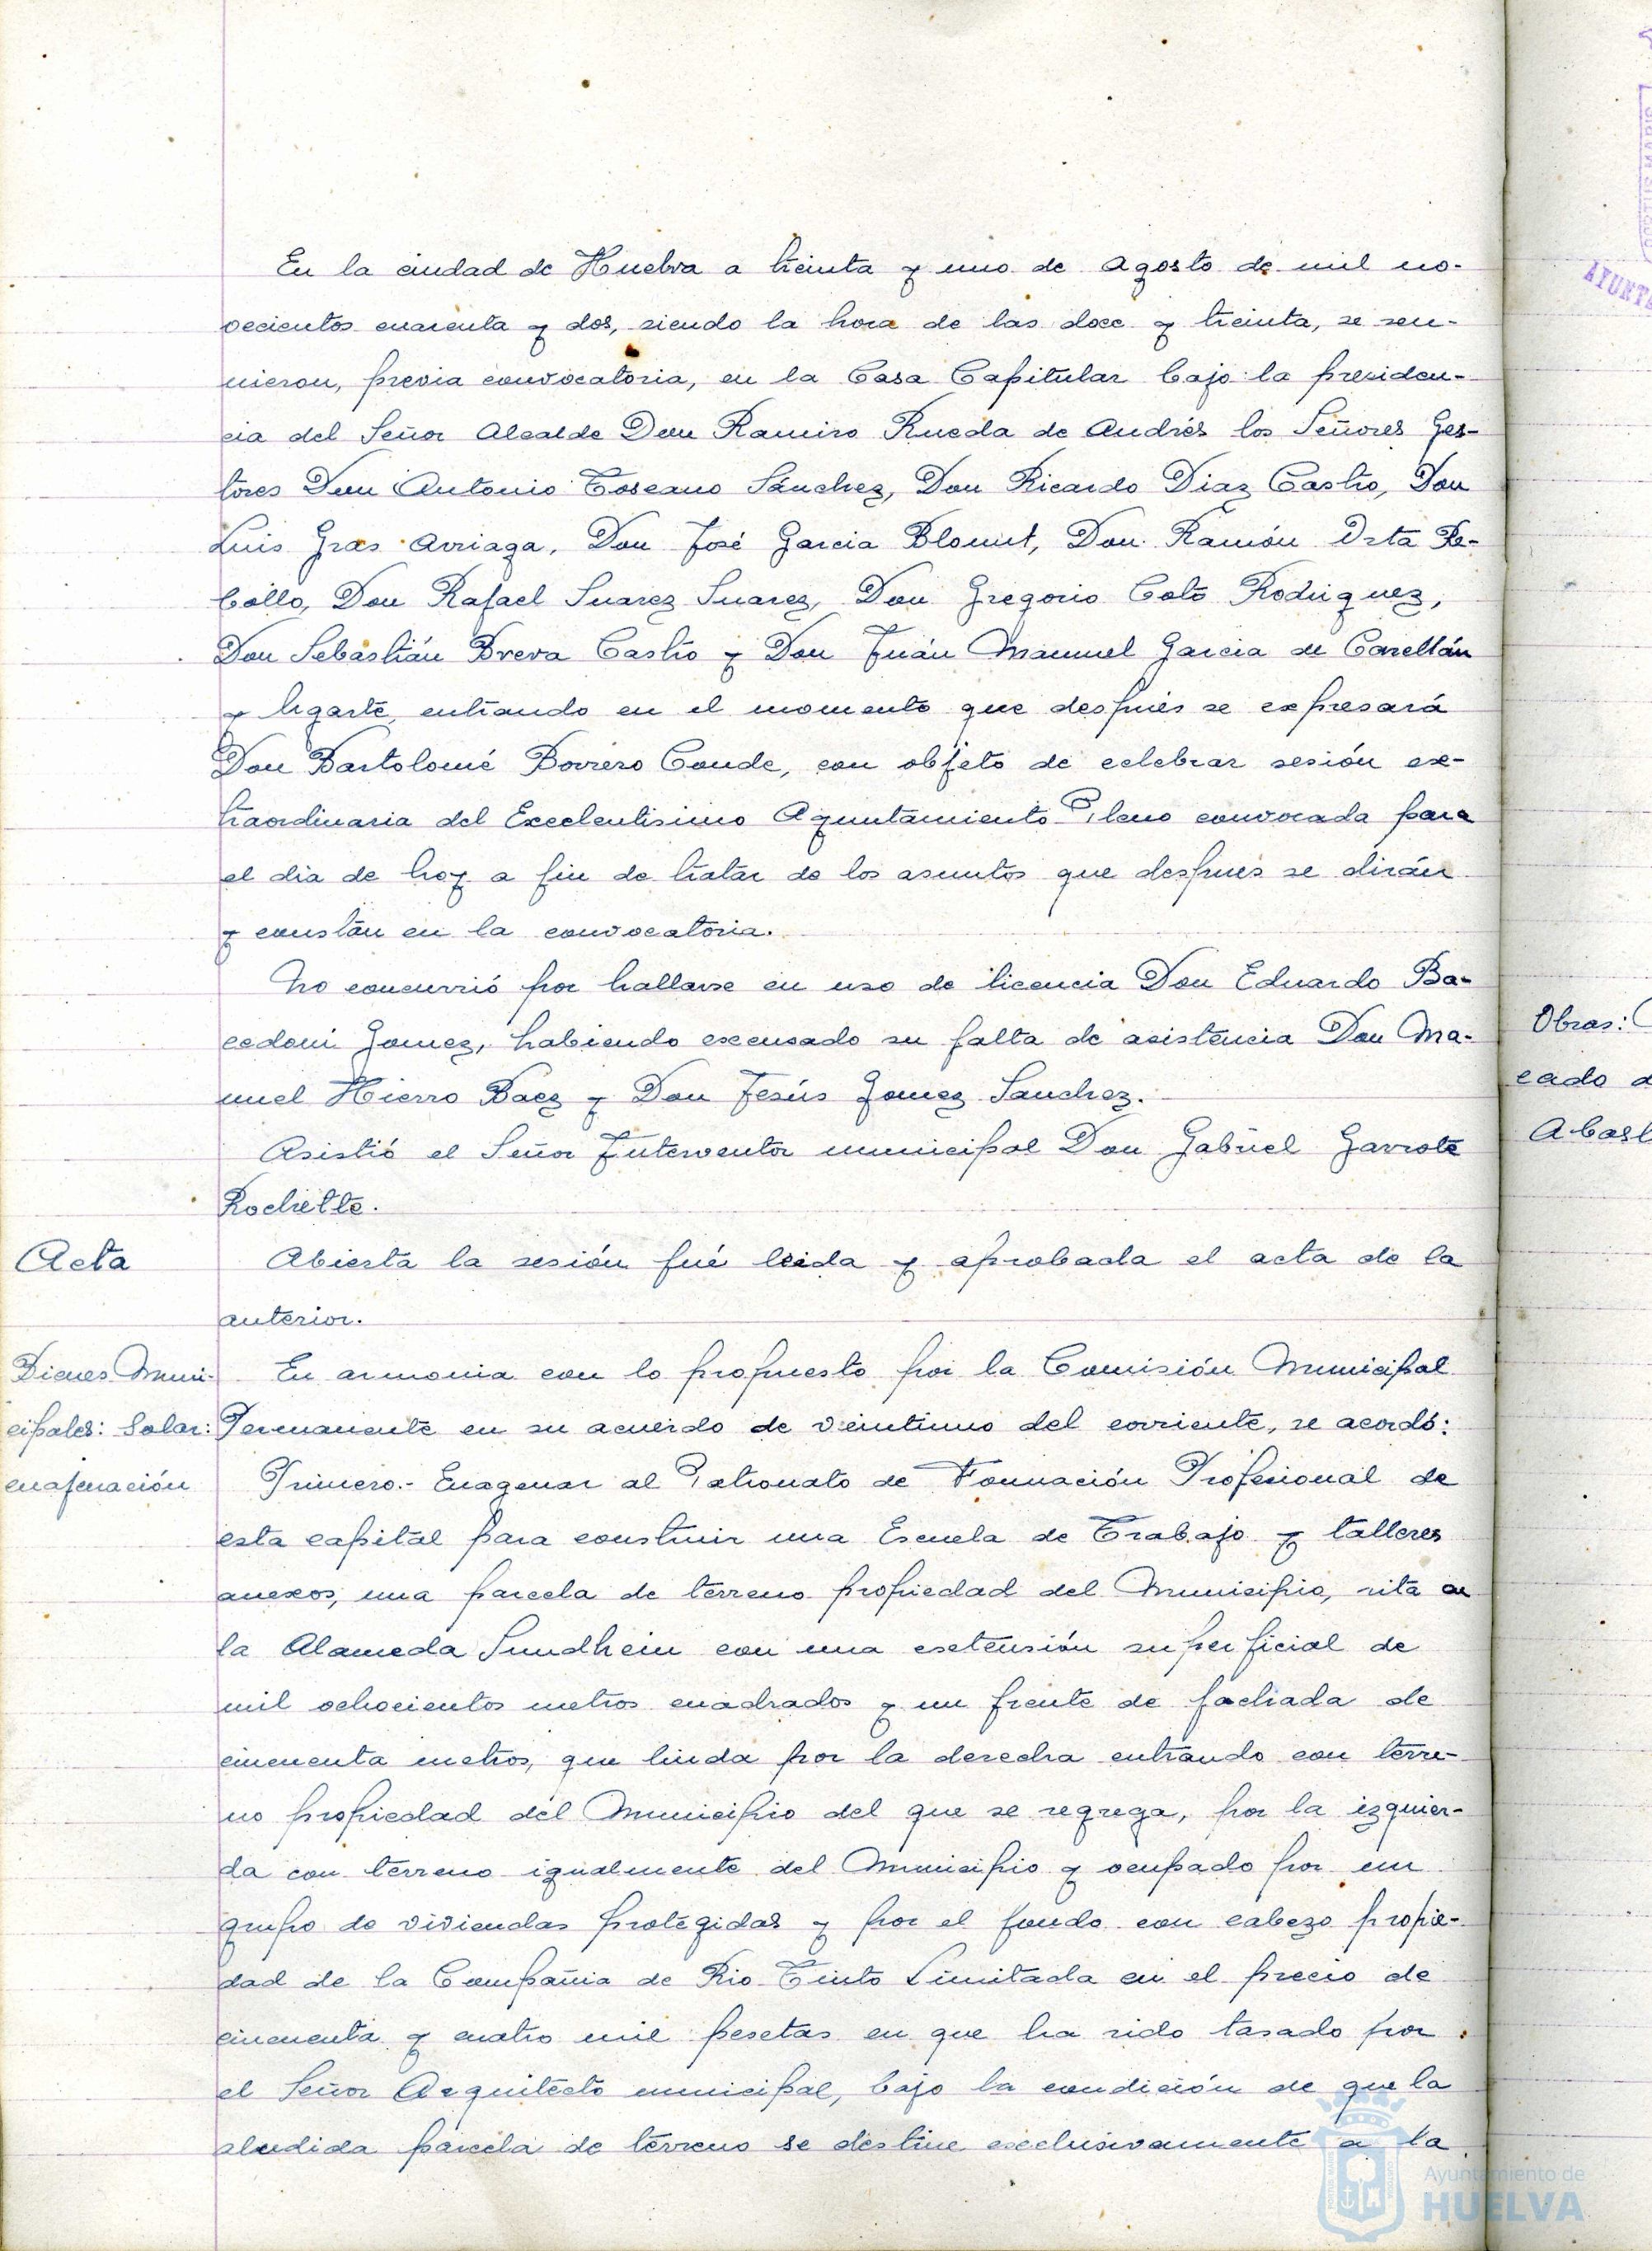 En la ciudad de Huelva a treinta y uno de Agosto de mil no-
vecientos cuarenta y dos, siendo la hora de las doce y treinta, se reu-
nieron, previa convocatoria, en la Casa Capitular bajo la presiden-
cia del Señor Alcalde Don Ramiro Rueda de Andrés los Señores Ges-
tores Don Antonio Toscano Sánchez, Don Ricardo Diaz Castro, Don
Luis Gras Arriaga, Don José Garcia Blomut, Don Ramón Orta Re-
bollo, Don Rafael Suarez Suarez, Don Gregorio Coto Rodriguez,
Don Sebastián Breva Castro y Don Juán Manuel Garcia de
y Ugarte, entrando en el momento que después se expresará
Don Bartolomé Borrero Conde, con objeto de celebrar sesión ex-
traordinaria del Excelentisimo Ayuntamiento Pleno convocada para
el dia de hoy a fin de tratar de los asuntos que despues se dirán
y constan en la convocatoria.
No concurrió por hallarse en uso de licencia Don Eduardo Ba-
cedoni Gomez, habiendo excusado su falta de asistencia Don Ma-
nuel Hierro Baez y Don Jesús Gomez Sanchez.
Asistió el Señor Interventor municipal Don Gabriel Garrote
Rochette.
Acta
Abierta la sesión fué leida y aprobada el acta de la
anterior.
Bienes Muni-
cipales: Solar:
enajenación
En armonia con lo propuesto por la Comisión Municipal
Permanente en su acuerdo de veintiuno del corriente, se acordó:
Primero.- Enagenar al Patronato de Formación Profesional de
esta capital para construir una Escuela de Trabajo y talleres
anexos, una parcela de terreno propiedad del Municipio, sita en
la Alameda Sundhein con una extensión superficial de
mil ochocientos metros cuadrados y un frente de fachada de
cincuenta metros, que linda por la derecha entrando con terre-
no propiedad del Municipio del que se segrega, por la izquier-
da con terreno igualmente del Municipio y ocupado por un
grupo de viviendas protegidas y por el fondo con cabezo propie-
dad de la Compañia de Rio Tinto Limitada en el precio de
cincuenta y cuatro mil pesetas en que ha sido tasado por
el Señor Arquitecto municipal, bajo la condición de que la
aludida parcela de terreno se destine exclusivamente a la
Obras:
cado
Ayuntamiento de
HUELVA